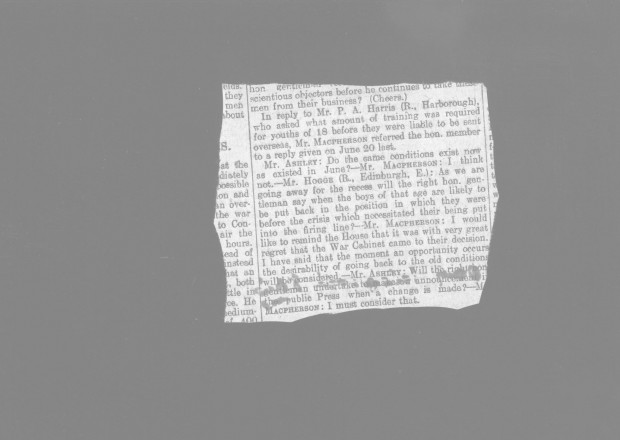 elds.
they
men
about
S.
at the
diately
possible
on and
an over-
the war
to Con-
air the
hours.
ead of
instead
hat an
, both
ttle in
ce. He
edium-
of 400
hon. gentleman
scientious objectors before he continues to take
men from their business? (Cheers.)
In reply to Mr. P. A. Harris (R., Harborough),
who asked what amount of training was required
for youths of 18 before they were liable to be sent
overseas, Mr. MACPHERSON referred the hon. member
to a reply given on June 20 last.
Mr. ASHLEY: Do the same conditions exist now
as existed in June?—Mr. MACPHERSON: I think
not.—Mr. HOGGE (R., Edinburgh, E.): As we are
going away for the recess will the right hon. gen-
tleman say when the boys of that age are likely to
be put back in the position in which they were
before the crisis which necessitated their being put
into the firing line?—Mr. MACPHERSON: I would
like to remind the House that it was with very great
regret that the War Cabinet came to their decision.
I have said that the moment an opportunity occurs
the desirability of going back to the old conditions
will be considered.—Mr. ASHLEY: Will the right hon
gentleman undertake announcement
the public Press when a change is made?—M
MACPHERSON: I must consider that.